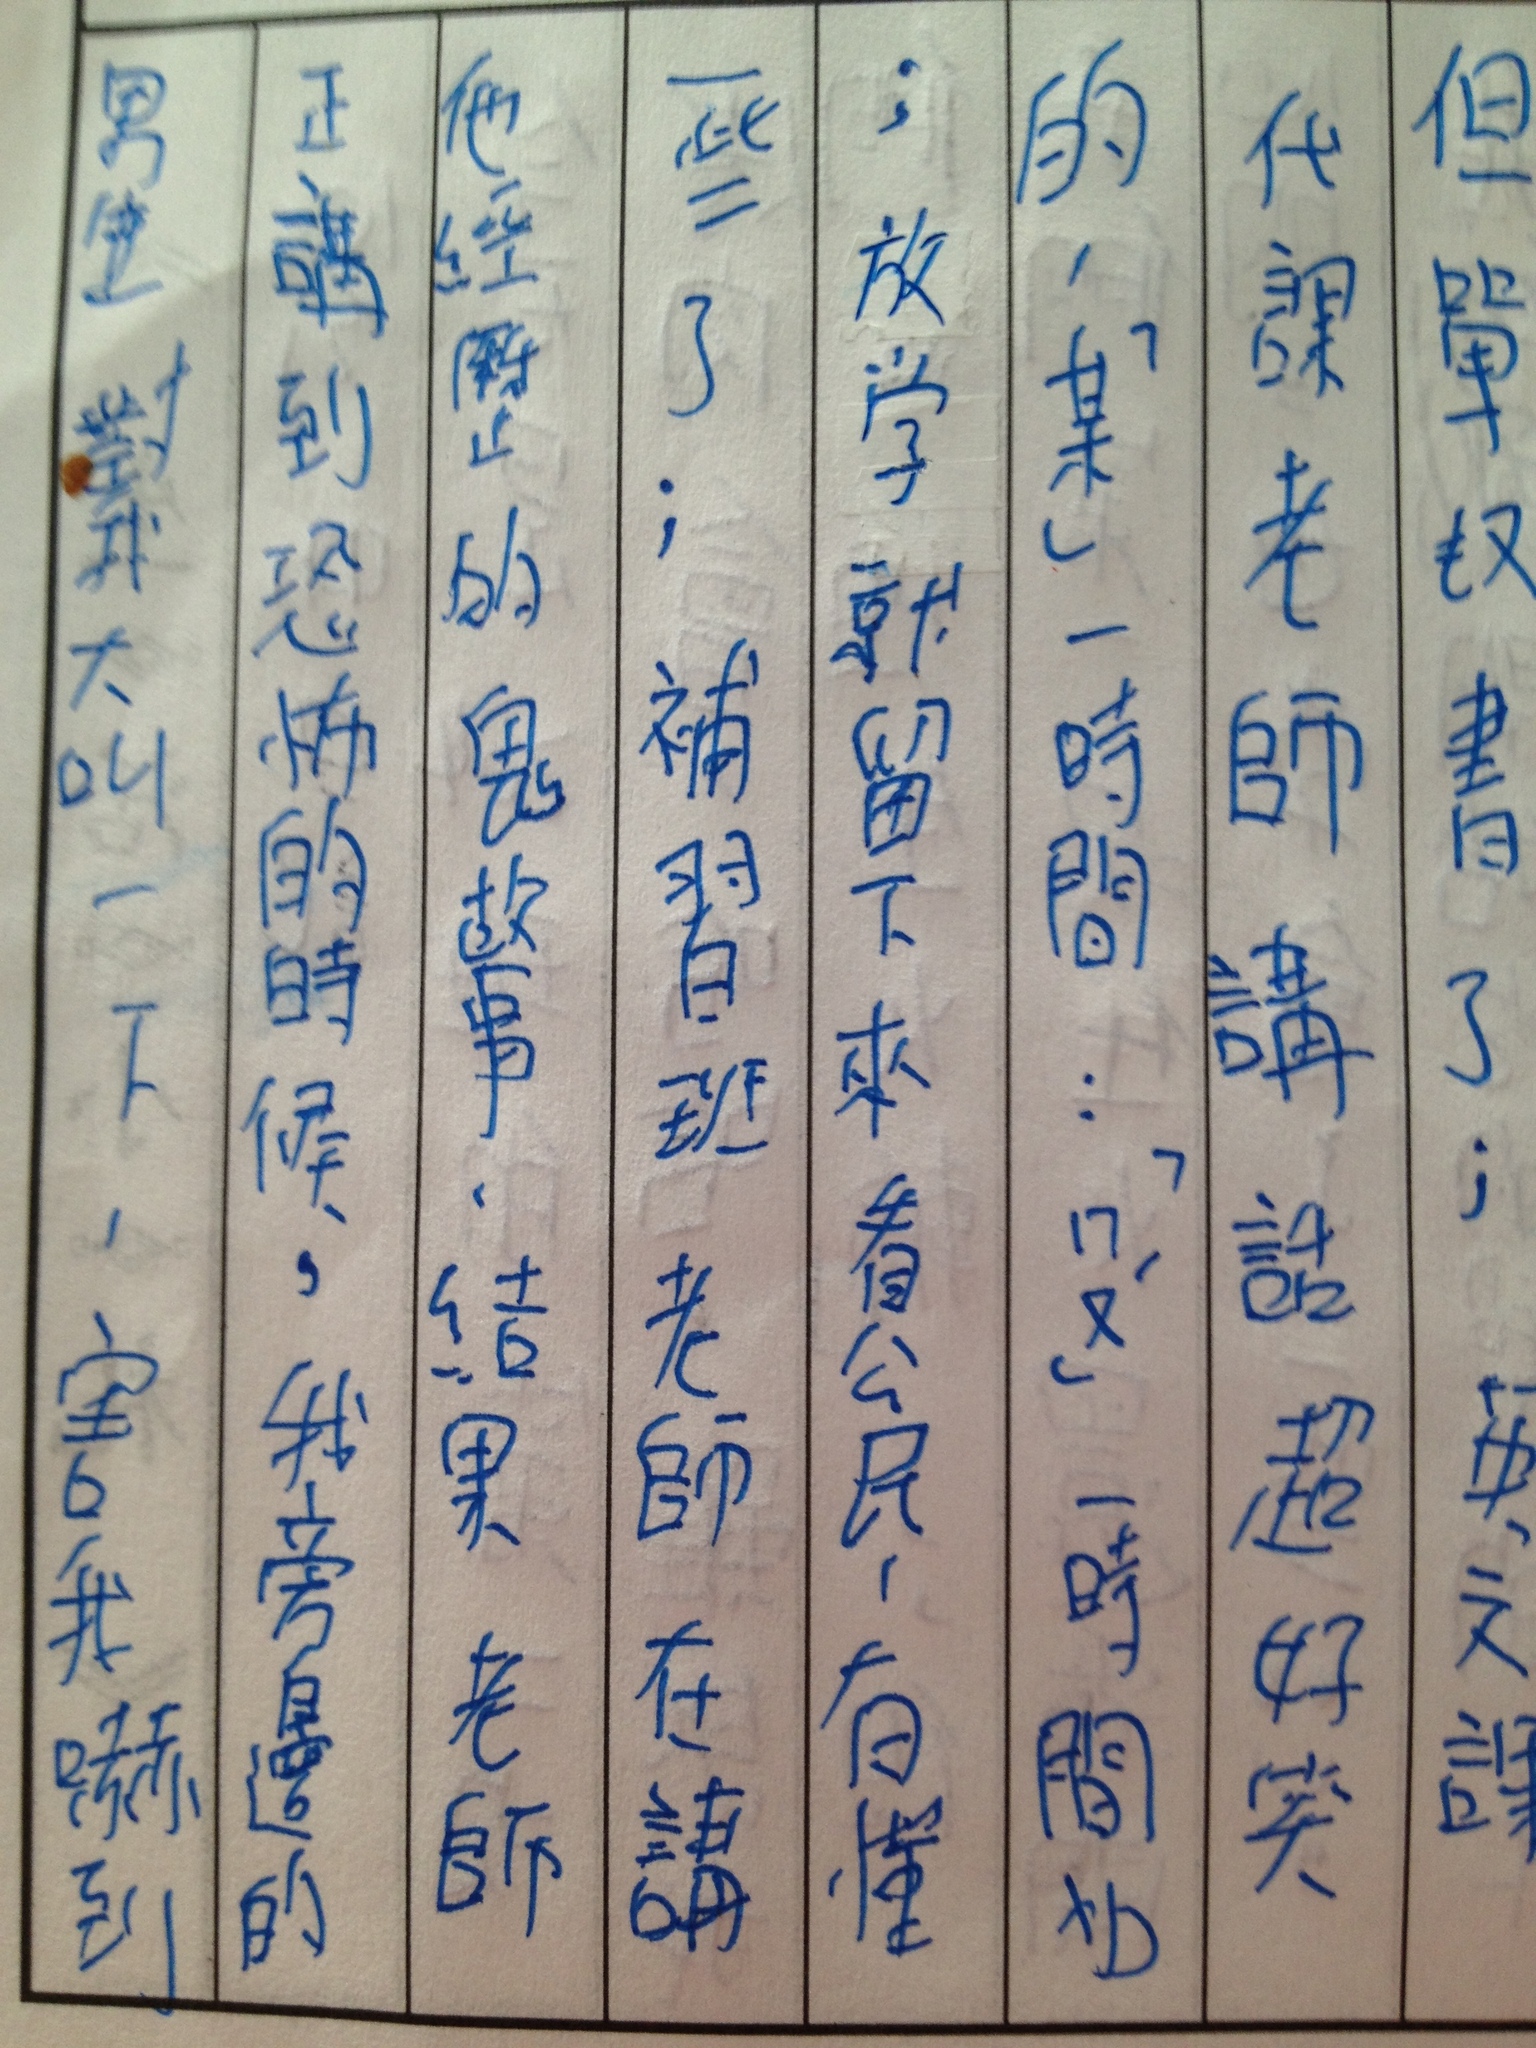 但單収書了；英文課
代課老師講話超好笑
的，「某」一時間：「ㄇㄡˇ」一時間也
；放学就留下來看公民，有懂
一些了；補習班老師在講
他經歷的鬼故事，結果老師
正講到恐怖的時候，我旁邊的
男生對我大叫一下，害我嚇到